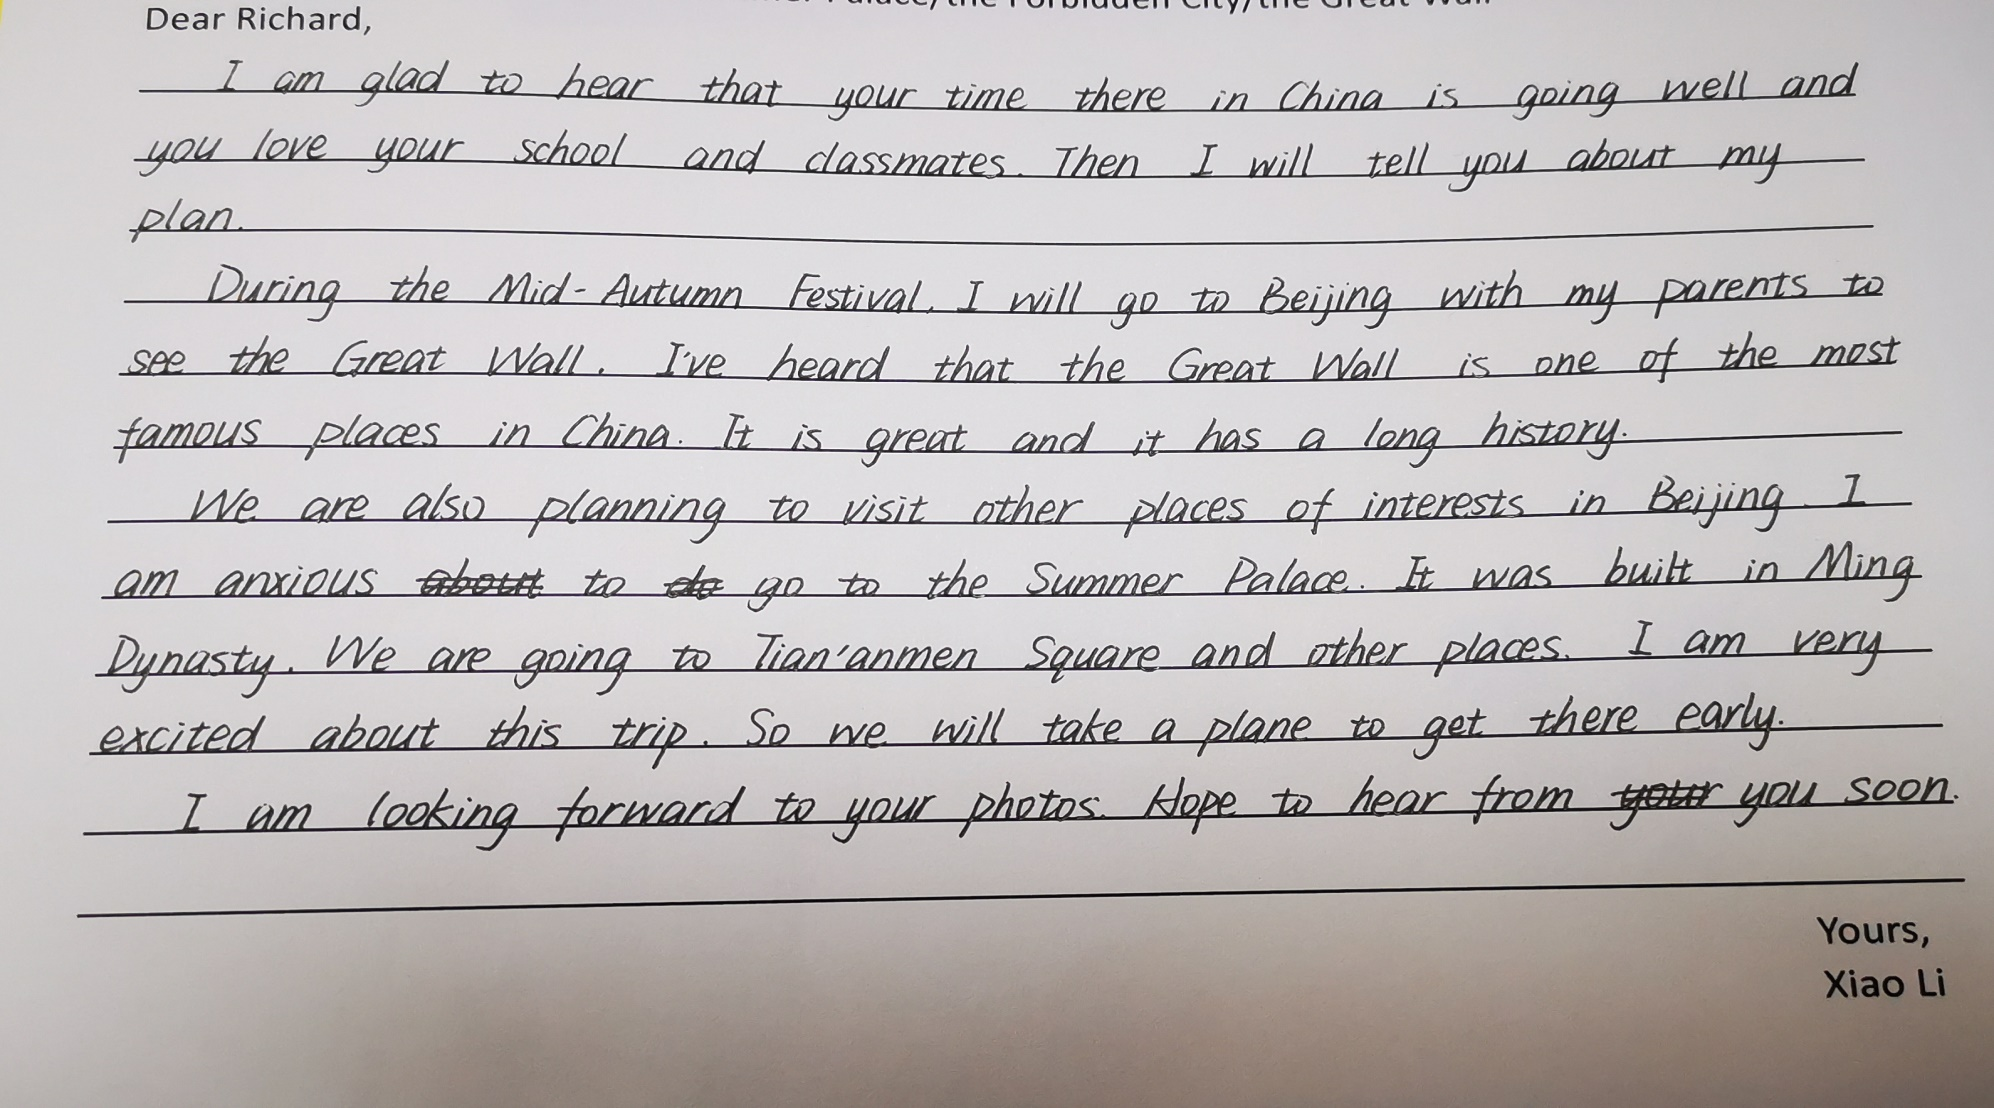 Palace/the Forbidden City/the Great Wall
Dear Richard,
I am glad to hear that your time there in China is going well and
you love your school and classmates. Then I will tell you about my
plan.
During the Mid-Autumn Festival, I will go to Beijing with my parents to
see the Great Wall. I've heard that the Great Wall is one of the most
famous places in China. It is great and it has a long history.
We are also planning to visit other places of interests in Beijing. I
am anxious about to do go to the Summer Palace. It was built in Ming
Dynasty. We are going to Tian'anmen Square and other places. I am very
excited about this trip. So we will take a plane to get there early.
I am looking forward to your photos. Hope to hear from your you soon.
Yours,
Xiao Li